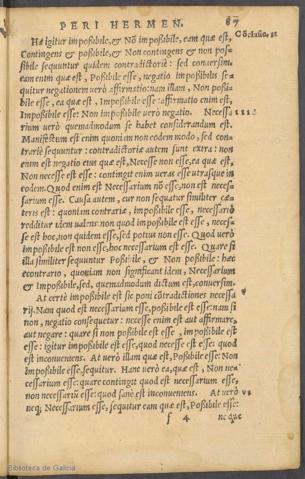 PERI HERMEN.
87
Hæ igitur impoßibile, & Nõ impoßibile, eam quæ est,
Cõclusio. 22
Contingens & poßibile, & Non contingens & non pos-
sibile sequuntur quidem contradictoriè: sed conuersim.
eam enim quæ est, Poßibile esse, negatio impoßibilis se-
quitur negationem verò affirmatio: nam illam, Non poßi-
bile esse, ea quæ est, Impoßibile esse: affirmatio enim est,
Impoßibile esse: Non impoßibile verò negatio. Necessa
rium verò quemadmodum se habet considerandum est.
Manifestum est enim quoniam non eodem modo, sed con-
trariè sequuntur: contradictoriæ autem sunt extra: non
enim est negatio eius quæ est, Necesse non esse, ea quæ est,
Non necesse est esse: contingit enim veras esse utrasque in
eodem. Quod enim est Necessarium nõ esse, non est neces-
sarium esse. Causa autem, cur non sequatur similiter cæ-
teris est: quoniam contrariæ, impoßibile esse, necessariò
redditur idem valens: non quod impoßibile est esse, neces-
se est hoc, non quidem esse, sed potius non esse. Quod verò
impoßibile est non esse, hoc necessarium est esse. Quare si
illa similiter sequuntur Poßibile, & Non poßibile: hæc
è contrario, quoniam non significant idem, Necessarium
& Impoßibile, sed, quemadmodum dictum est, conuersim.
At certè impoßibile est sic poni cõtradictiones necessa
rij. Nam quod est necessarium esse, poßibile est esse: nam si
non, negatio consequetur: necesse enim est aut affirmare,
aut negare: quare si non poßibile est esse, impoßibile est
esse: igitur impoßibile est esse, quod necesse est esse: quod
est inconueniens. At verò illam quæ est, Poßibile esse: Non
impoßibile esse, sequitur. Hanc verò ea, quæ est, Non ne-
cessarium esse: quare contingit quod est necessarium esse,
non necessariũ esse: quod sanè est inconueniens. At verò
neq; Necessarium esse, sequitur eam quæ est, Poßibile esse:
f 4
neque
Biblioteca de Galicia